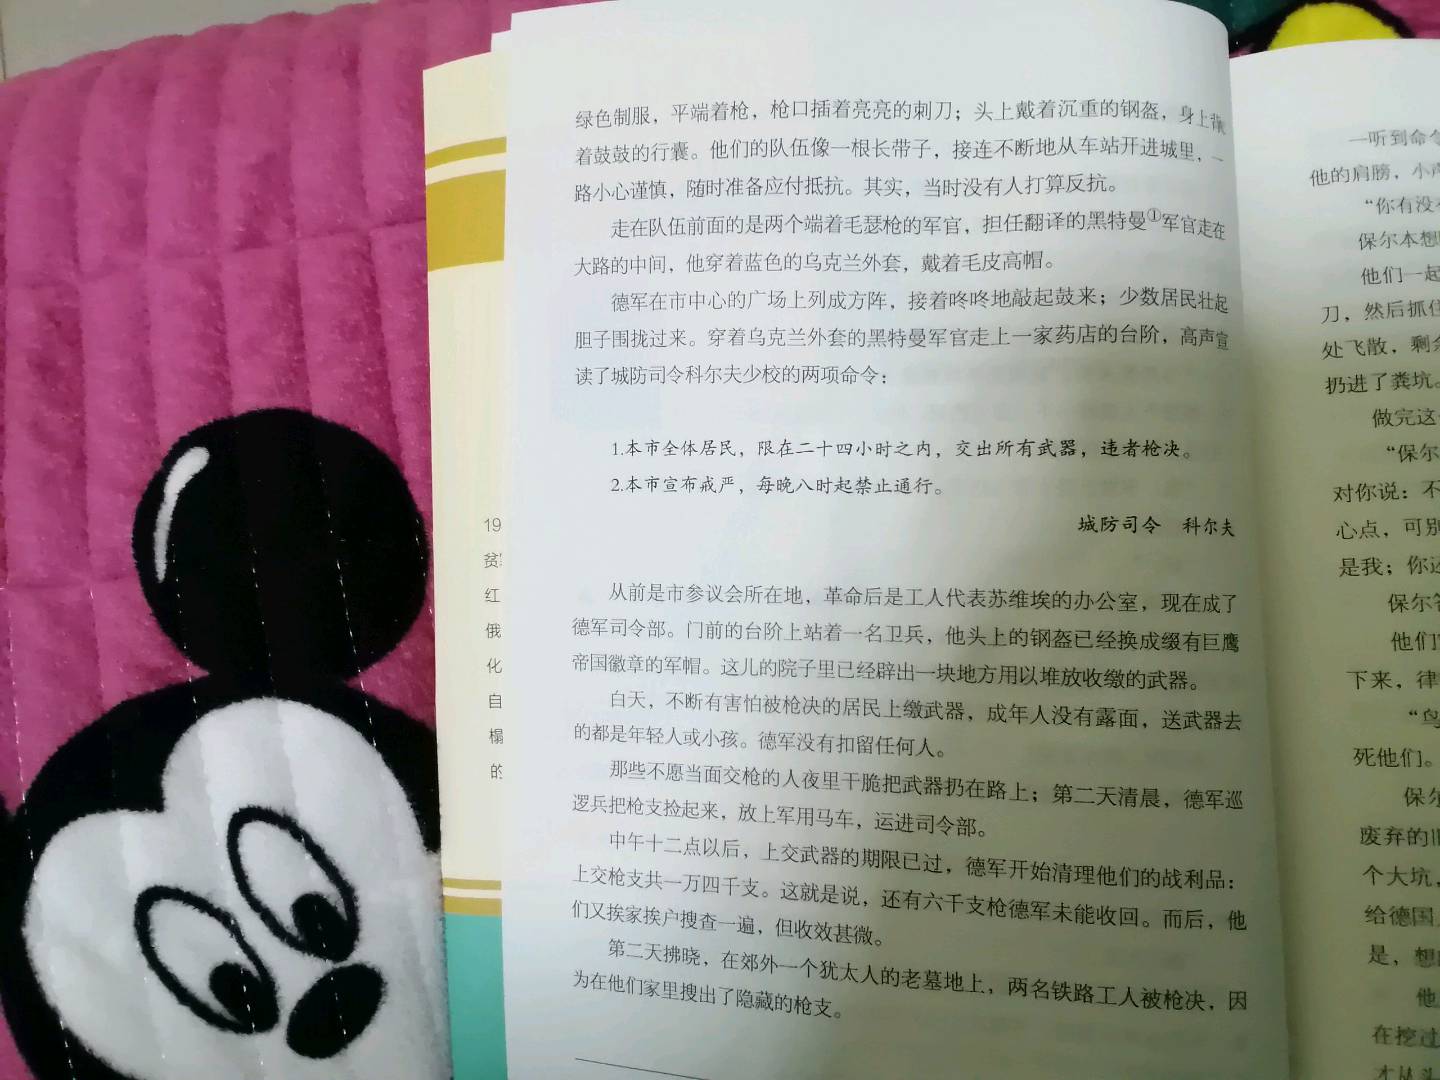 绿色制服，平端着枪，枪口插着亮亮的刺刀；头上戴着沉重的钢盔，身上背
着鼓鼓的行囊。他们的队伍像一根长带子，接连不断地从车站开进城里，一
路小心谨慎，随时准备应付抵抗。其实，当时没有人打算反抗。
走在队伍前面的是两个端着毛瑟枪的军官，担任翻译的黑特曼①军官走在
大路的中间，他穿着蓝色的乌克兰外套，戴着毛皮高帽。
德军在市中心的广场上列成方阵，接着咚咚地敲起鼓来；少数居民壮起
胆子围拢过来。穿着乌克兰外套的黑特曼军官走上一家药店的台阶，高声宣
读了城防司令科尔夫少校的两项命令：
1.本市全体居民，限在二十四小时之内，交出所有武器，违者枪决。
2.本市宣布戒严，每晚八时起禁止通行。
城防司令　科尔夫
从前是市参议会所在地，革命后是工人代表苏维埃的办公室，现在成了
德军司令部。门前的台阶上站着一名卫兵，他头上的钢盔已经换成缀有巨鹰
帝国徽章的军帽。这儿的院子里已经辟出一块地方用以堆放收缴的武器。
白天，不断有害怕被枪决的居民上缴武器，成年人没有露面，送武器去
的都是年轻人或小孩。德军没有扣留任何人。
那些不愿当面交枪的人夜里干脆把武器扔在路上；第二天清晨，德军巡
逻兵把枪支捡起来，放上军用马车，运进司令部。
中午十二点以后，上交武器的期限已过，德军开始清理他们的战利品：
上交枪支共一万四千支。这就是说，还有六千支枪德军未能收回。而后，他
们又挨家挨户搜查一遍，但收效甚微。
第二天拂晓，在郊外一个犹太人的老墓地上，两名铁路工人被枪决，因
为在他们家里搜出了隐藏的枪支。
19
贫
红
俄
化
自
榻
的
一听到命令
他的肩膀，小声
“你有没
保尔本想
他们一起
刀，然后抓住
处飞散，剩余
扔进了粪坑。
做完这
“保尔
对你说：不
心点，可别
是我；你还
保尔答
他们
下来，律
“鸟
死他们。
保尔
废弃的旧
个大坑，
给德国
是，想
他
在挖过
才从头